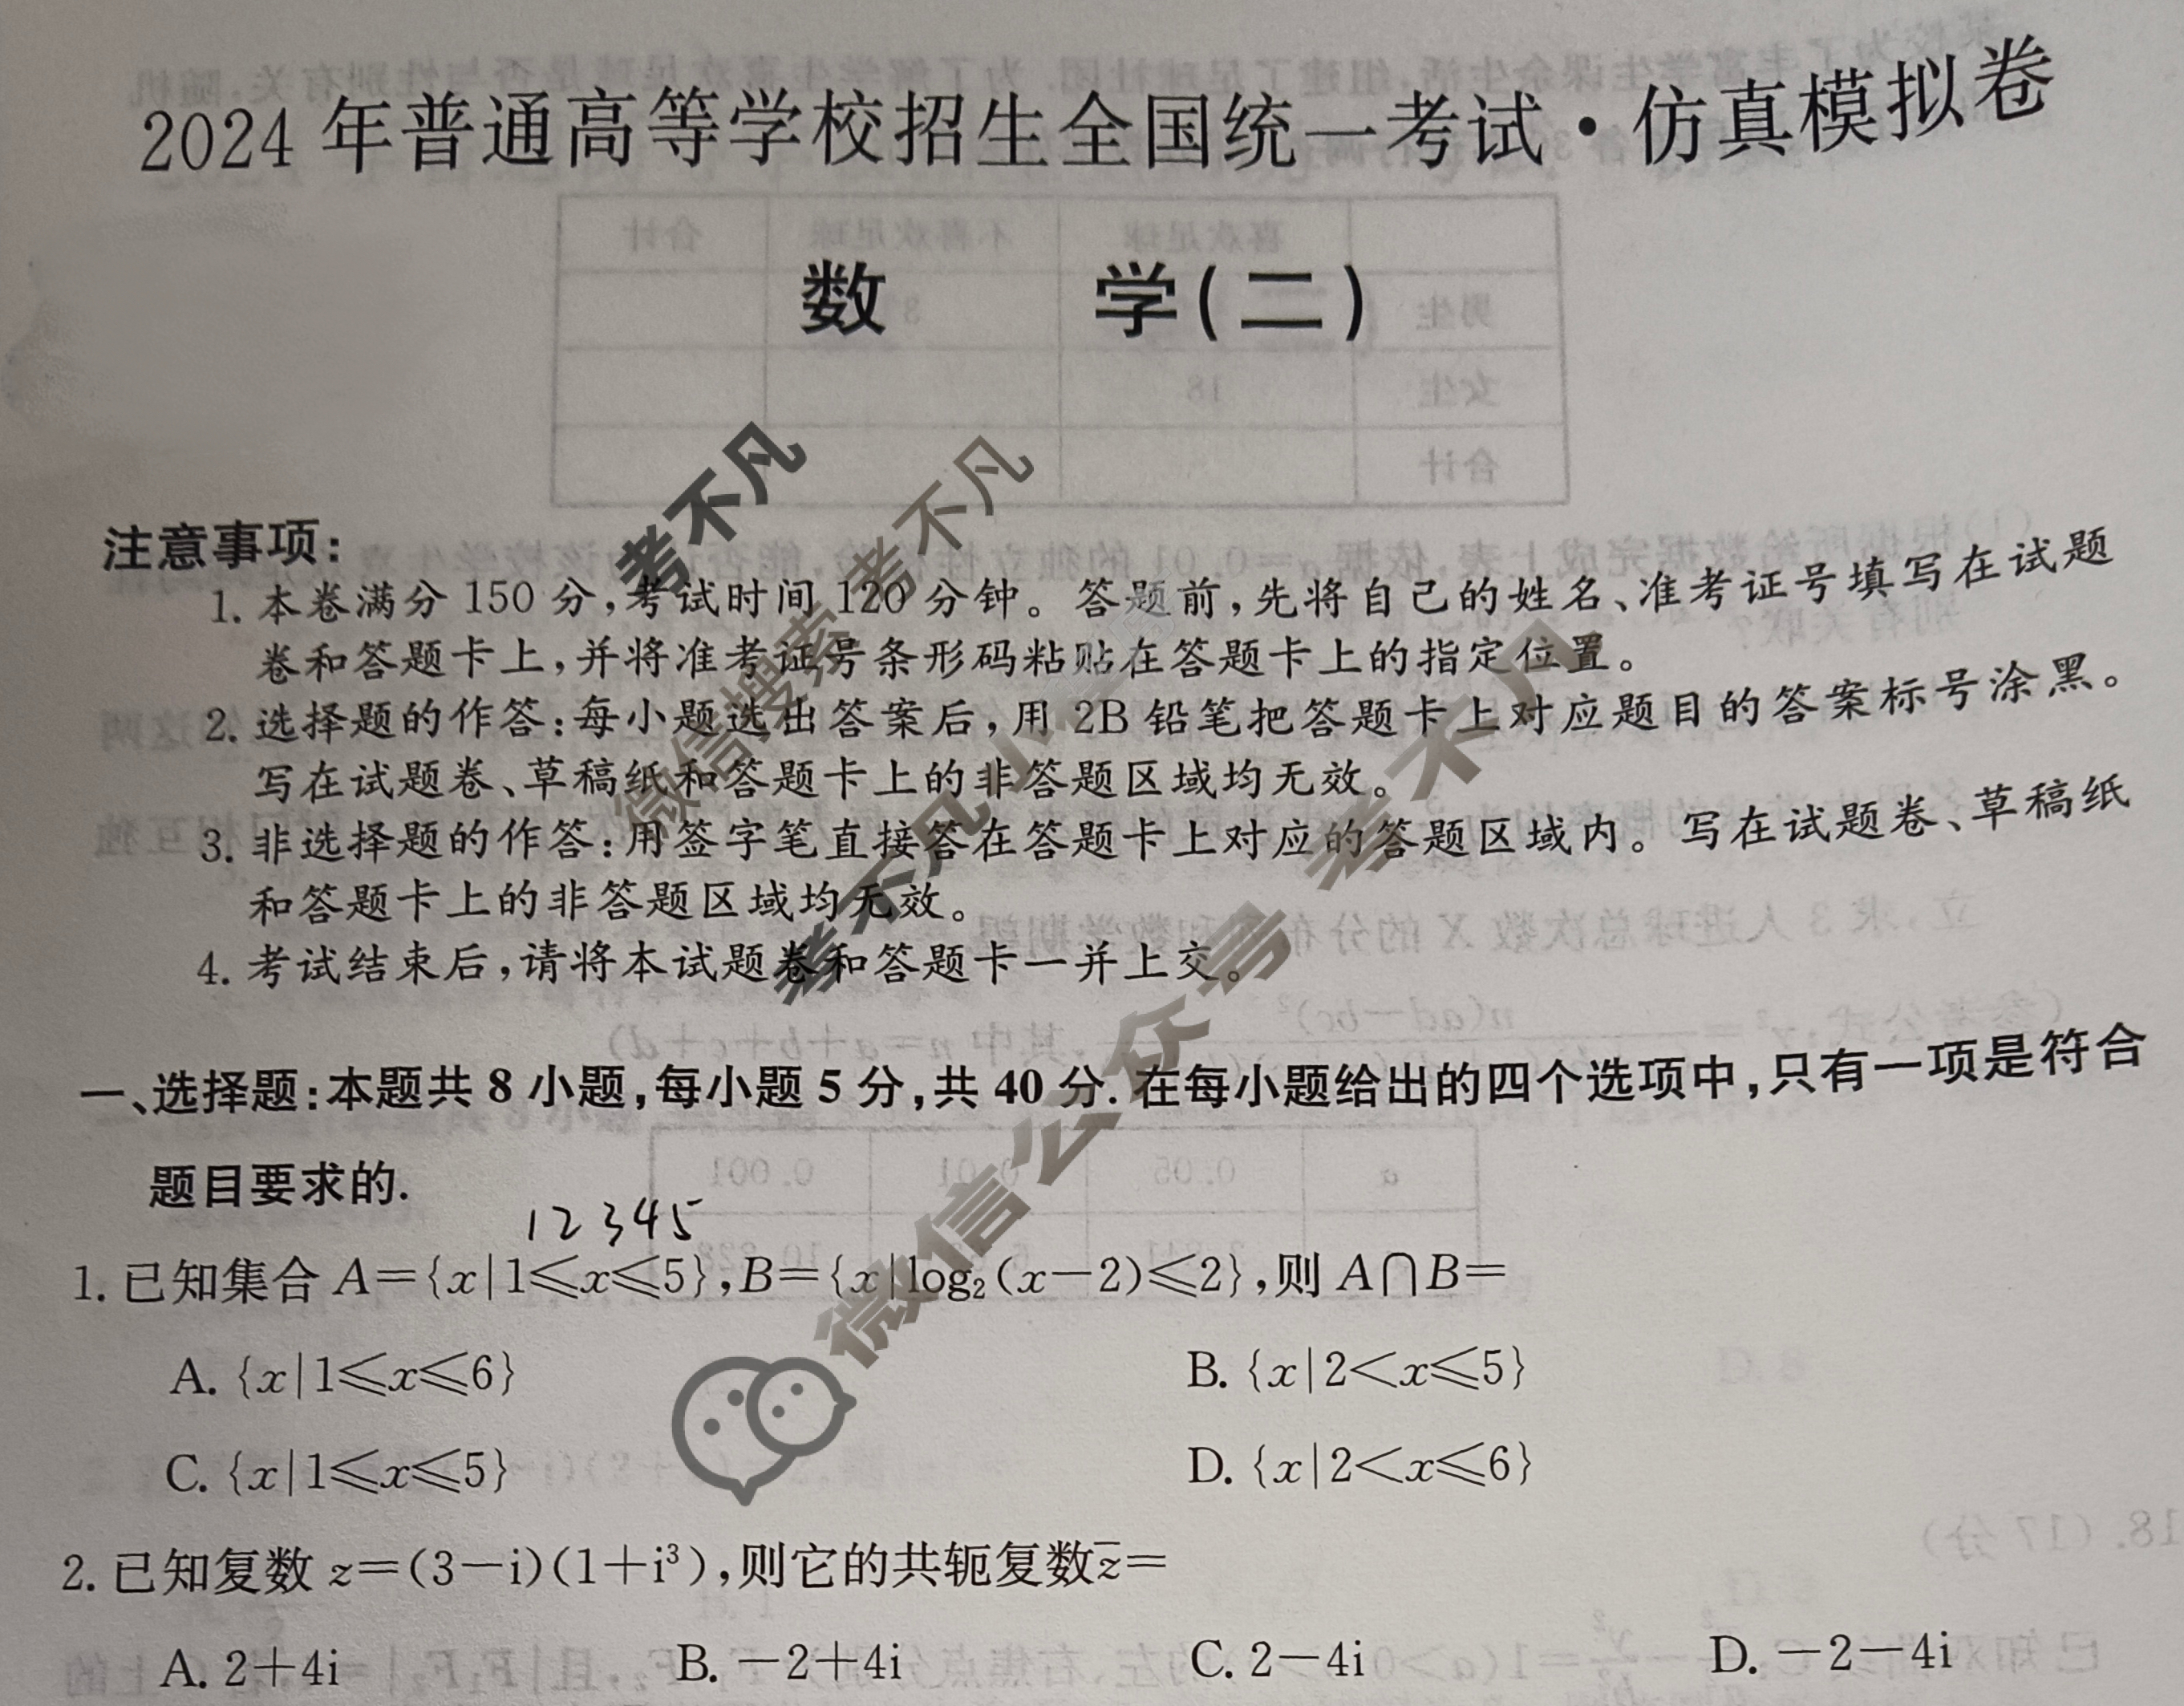 2024年普通高等学校招生全国统一考试·仿真模拟卷
数 学(二)
注意事项:
1. 本卷满分150分,考试时间120分钟。答题前,先将自己的姓名、准考证号填写在试题
卷和答题卡上,并将准考证号条形码粘贴在答题卡上的指定位置。
2. 选择题的作答:每小题选出答案后,用2B铅笔把答题卡上对应题目的答案标号涂黑。
写在试题卷、草稿纸和答题卡上的非答题区域均无效。
3. 非选择题的作答:用签字笔直接答在答题卡上对应的答题区域内。写在试题卷、草稿纸
和答题卡上的非答题区域均无效。
4. 考试结束后,请将本试题卷和答题卡一并上交。
一、选择题:本题共8小题,每小题5分,共40分. 在每小题给出的四个选项中,只有一项是符合
题目要求的.
1 2 3 4 5
1. 已知集合 A={x|1≤x≤5},B={x|log₂(x-2)≤2},则 A∩B=
A. {x|1≤x≤6} B. {x|2<x≤5}
C. {x|1≤x≤5} D. {x|2<x≤6}
2. 已知复数 z=(3-i)(1+i³),则它的共轭复数z̅=
A. 2+4i B. -2+4i C. 2-4i D. -2-4i
考不凡
微信搜索 考不凡
考不凡小程序
微信公众号 考不凡